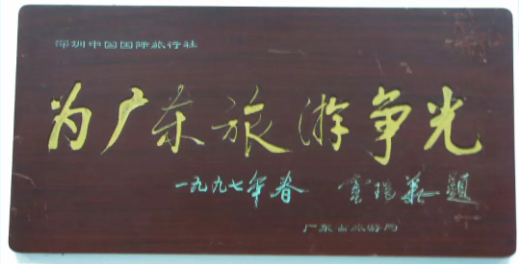 深圳中国国际旅行社
为广东旅游争光
一九九七年春 题
广东省旅游局